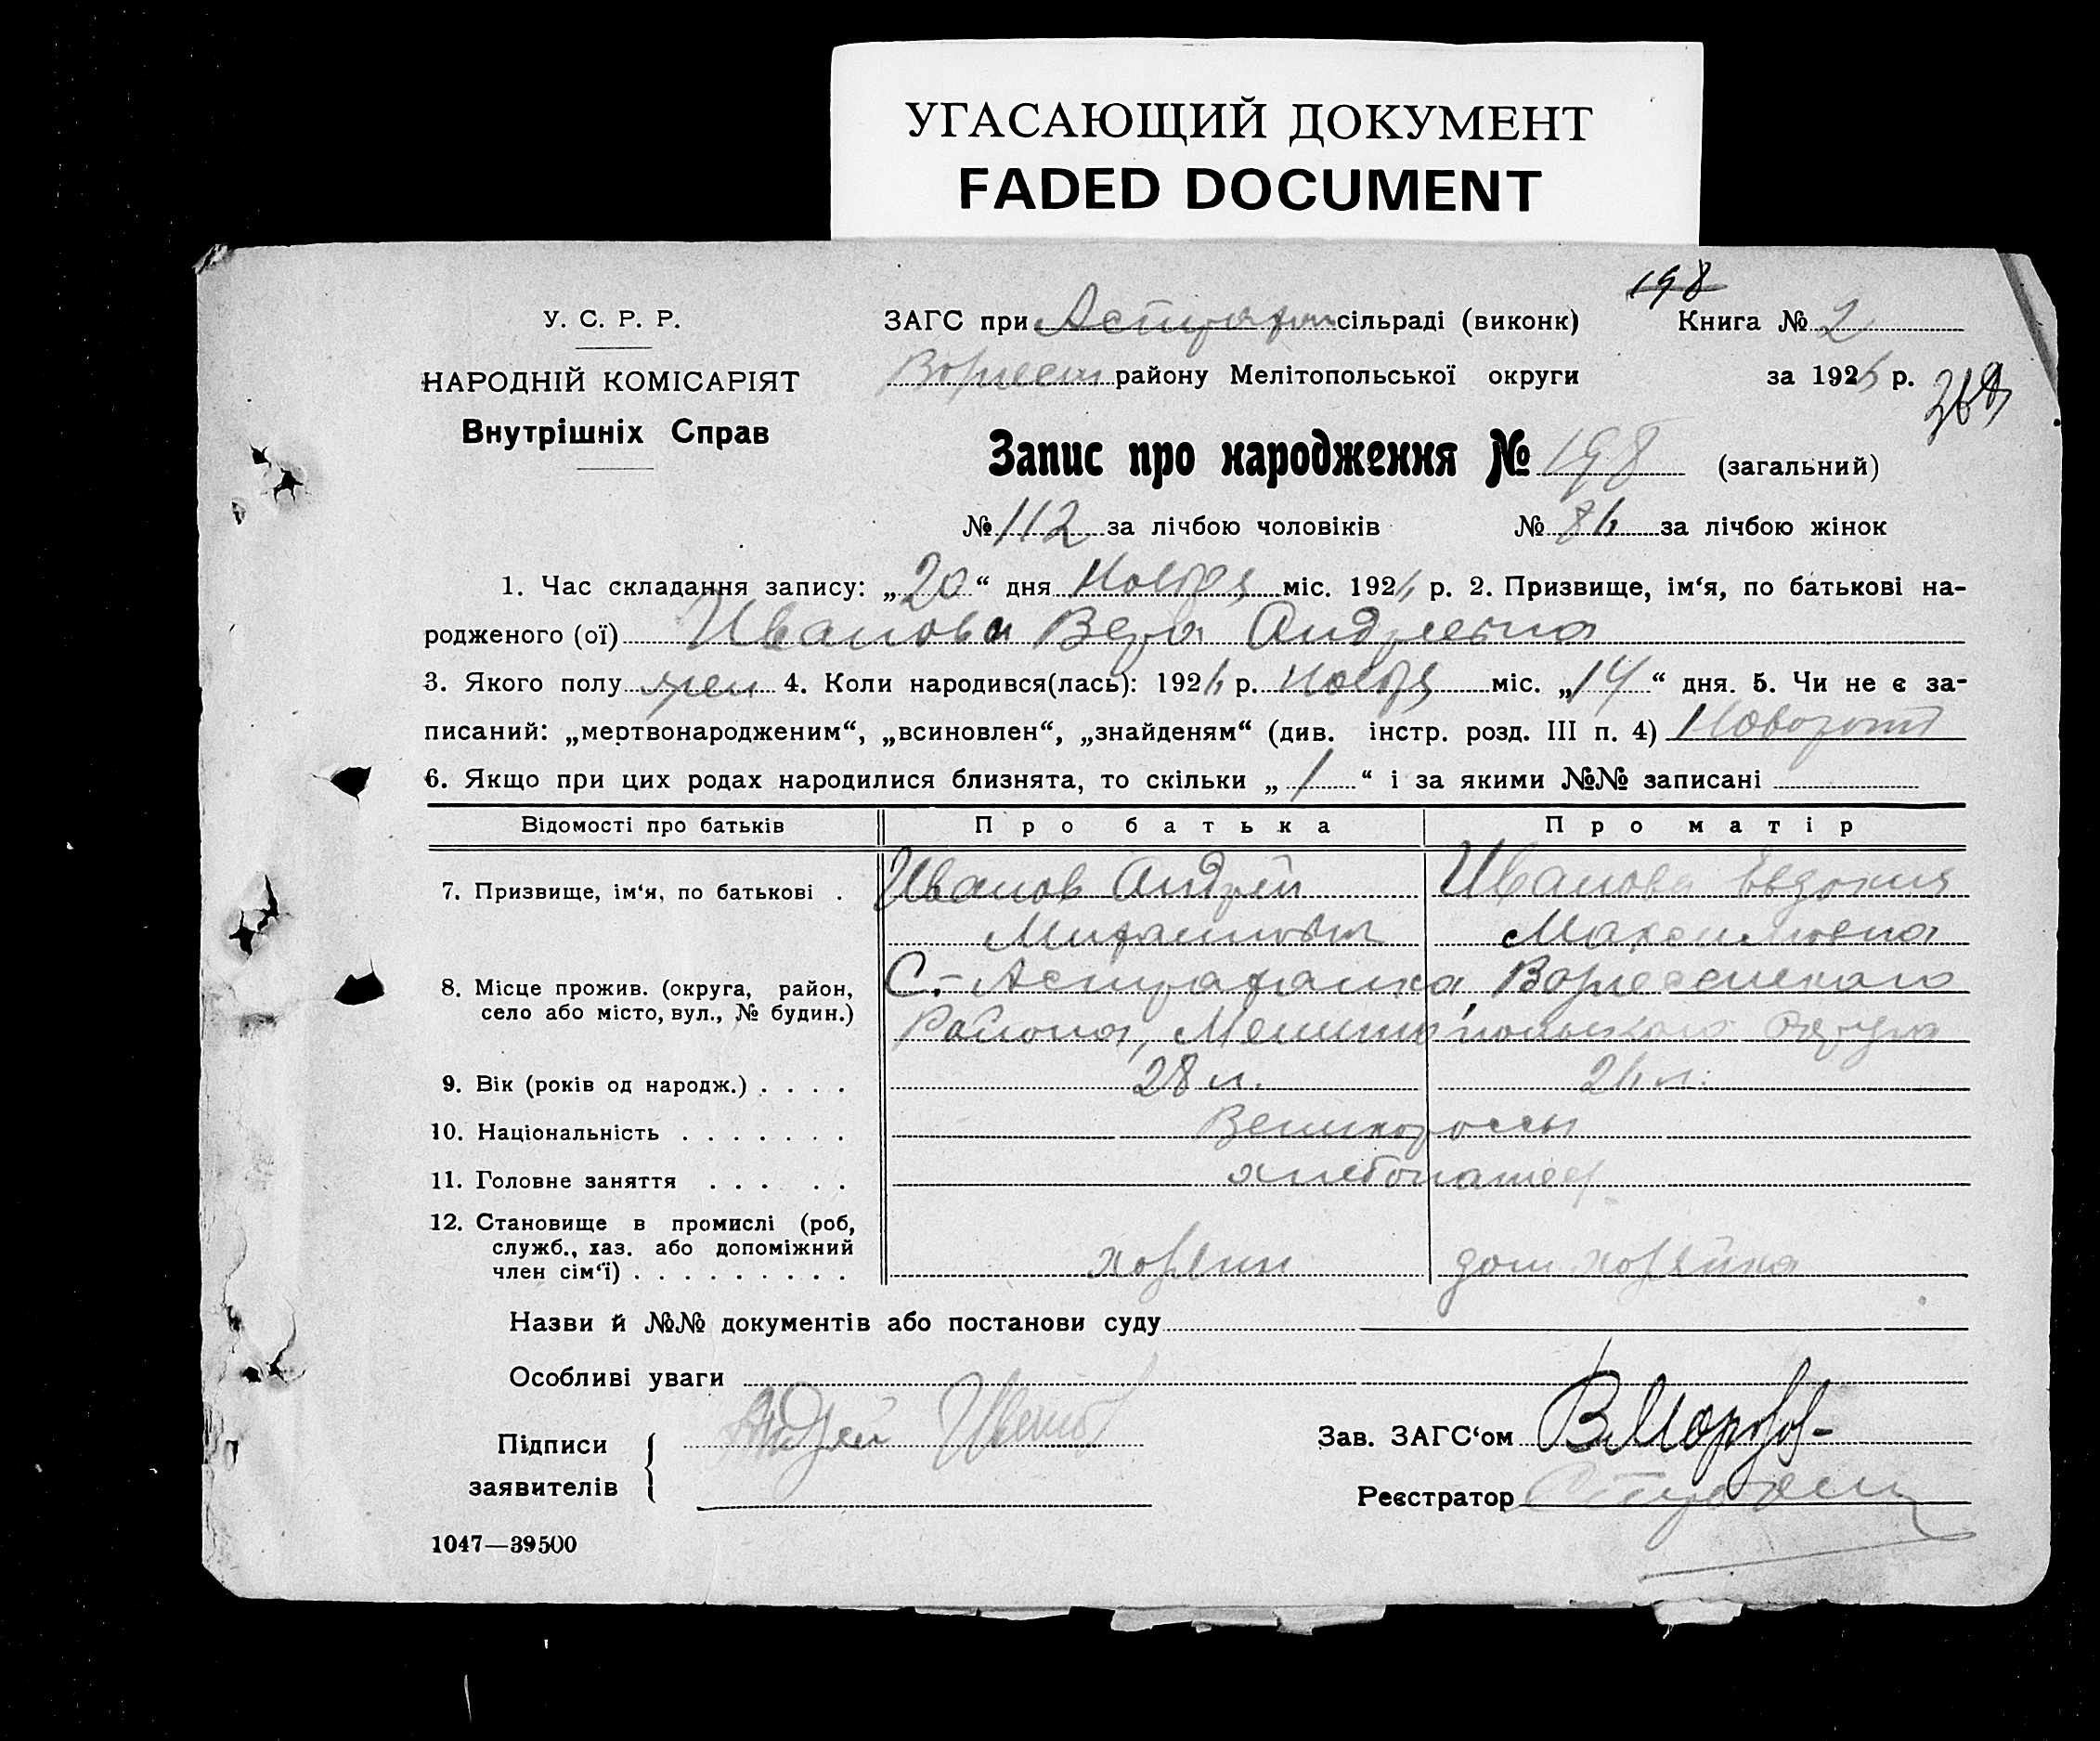 УГАСАЮЩИЙ ДОКУМЕНТ
FADED DOCUMENT
198
У. С. Р. Р.
НАРОДНІЙ КОМІСАРІЯТ
Внутрішніх Справ
ЗАГС при Астрахан сільраді (виконк)
Книга № 2
района Мелітопольської округи
за 1926 р.
368
Запис про народження № 198 (загальний)
№ 112 за лічбою чоловіків № 86 за лічбою жінок
1. Час складання запису: „20“ дня Ноября міс. 1926 р. 2. Призвище, ім‘я, по батькові на-
родженого (ої) Иванова Вера Андреевна
3. Якого полу жен 4. Коли народився(лась): 1926 р. Ноября міс. „14“ дня. 5. Чи не є за-
писаний: „мертвонародженим“, „всиновлен“, „знайденям“ (див. інстр. розд. III п. 4)
6. Якщо при цих родах народилися близнята, то скільки „1“ і за якими №№ записані
Відомості про батьків Про батька Про матір
7. Призвище, ім‘я, по батькові . Иванов Андрей Иванова Евдокия
Максимовна
8. Місце прожив. (округа, район, село або місто, вул., № будин.) С.-Астраханка, Вознесенского
Района, Мелитопольского Округа
9. Вік (років од народж.) . . . . 28 л. 26 л.
10. Національність . . . . . . . Великороссы
11. Головне заняття . . . . . хлебопашец
12. Становище в промислі (роб,
служб., хаз. або допоміжний
член сім‘ї) . . . . . . . . . хозяин дом хозяйка
Назви й №№ документів або постанови суду
Особливі уваги
Підписи
заявителів
Андрей Иванов
Зав. ЗАГС‘ом В Морозов
Реєстратор
1047—39500